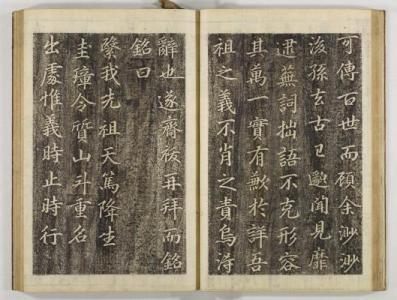 可傳百世而碩余渺渺
後孫玄古已邈聞見靡
逮蕪詞拙語不克形容
其萬一實有歉於詳吾
祖之義不肖之責烏得
辭也遂齋祓再拜而銘
銘曰
繄我先祖天篤降生
圭璋令質山斗重名
出處惟義時止時行